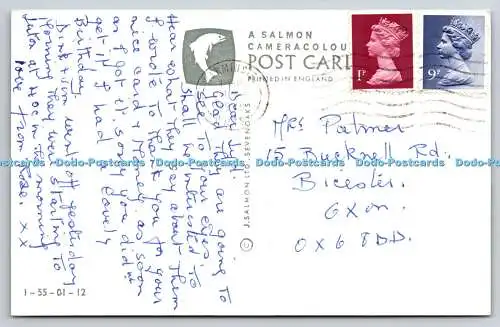 A SALMON
CAMERACOLOU
POST CARD
PRINTED IN ENGLAND
1P
9P
© J. SALMON LTD. SEVENOAKS
Dear
Glad they are going to
see to your eyes
shall be interested to
Hear what they say about them
I wrote to thank you for your
nice card & money as soon
as I got it sorry you didn't
get it I had a lovely
Birthday
Dink & Jim went off yesterday
Morning they were starting to
at 4oc in the morning
love from Rose. x x
Mrs Palmer
15 Bucknell Rd.
Bicester
Oxon.
OX6 8DD.
1-55-01-12
Dodo-Postcards Dodo-Postcards Dodo-Postcards Dodo-Postcards Dodo-Postcards